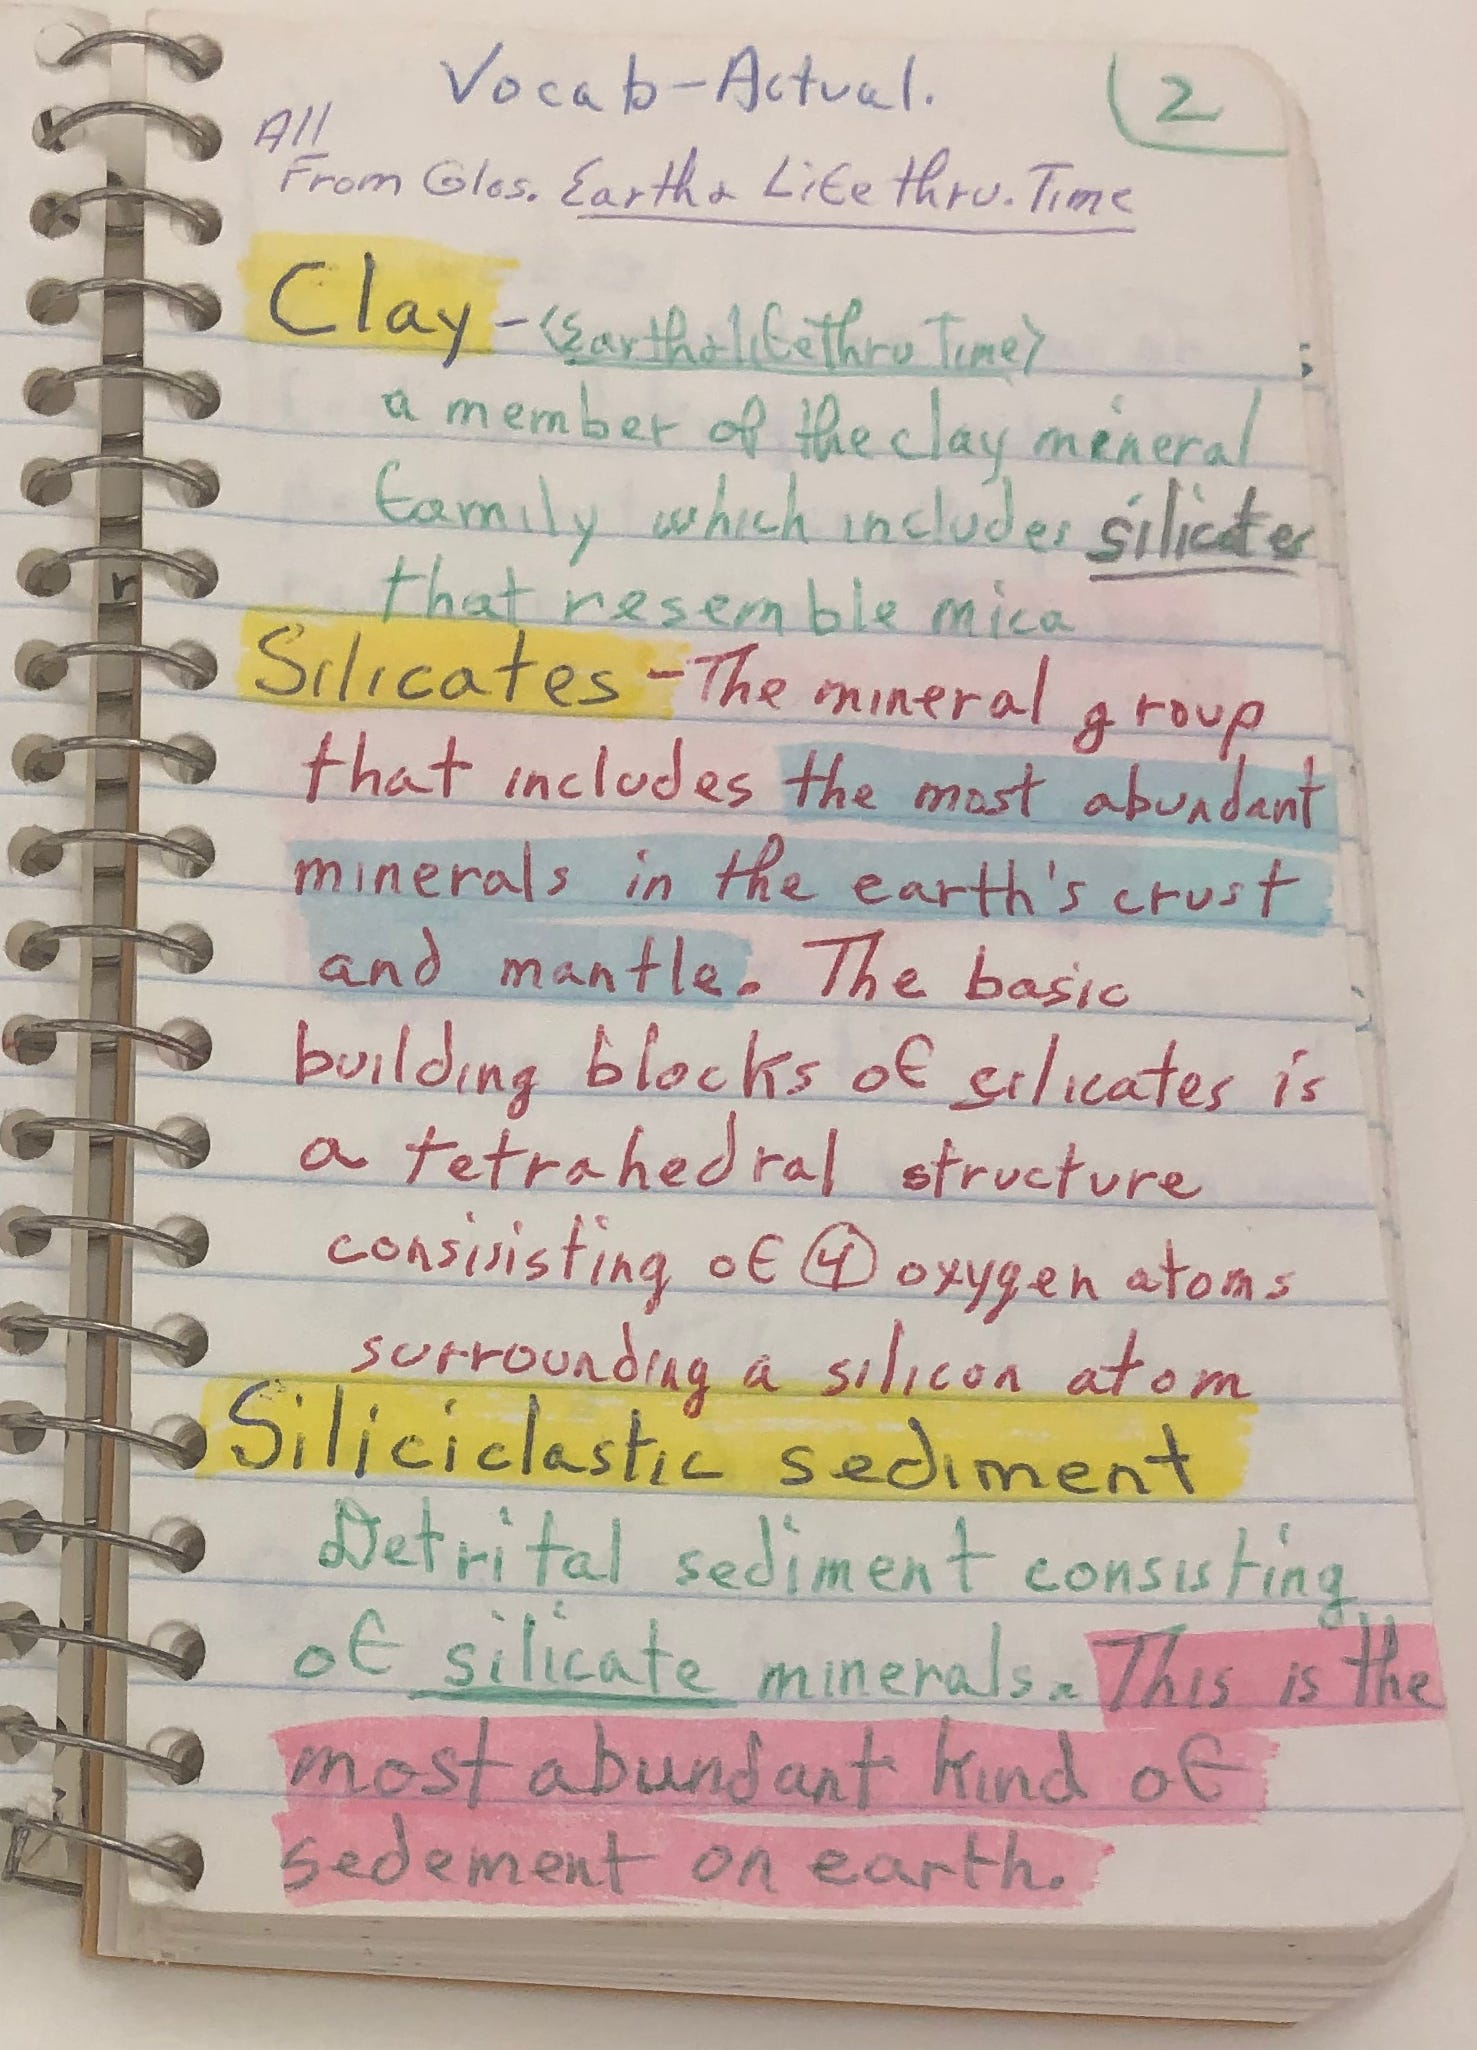 Vocab-Actual.
2
All
From Glos. Earth & Life thru. Time
Clay - <Earth & life thru Time> ;
a member of the clay mineral
family which includes silicates
that resemble mica
Silicates - The mineral group
that includes the most abundant
minerals in the earth's crust
and mantle. The basic
building blocks of silicates is
a tetrahedral structure
consisisting of 4 oxygen atoms
surrounding a silicon atom
Siliciclastic sediment
Detrital sediment consisting
of silicate minerals. This is the
most abundant kind of
sedement on earth.